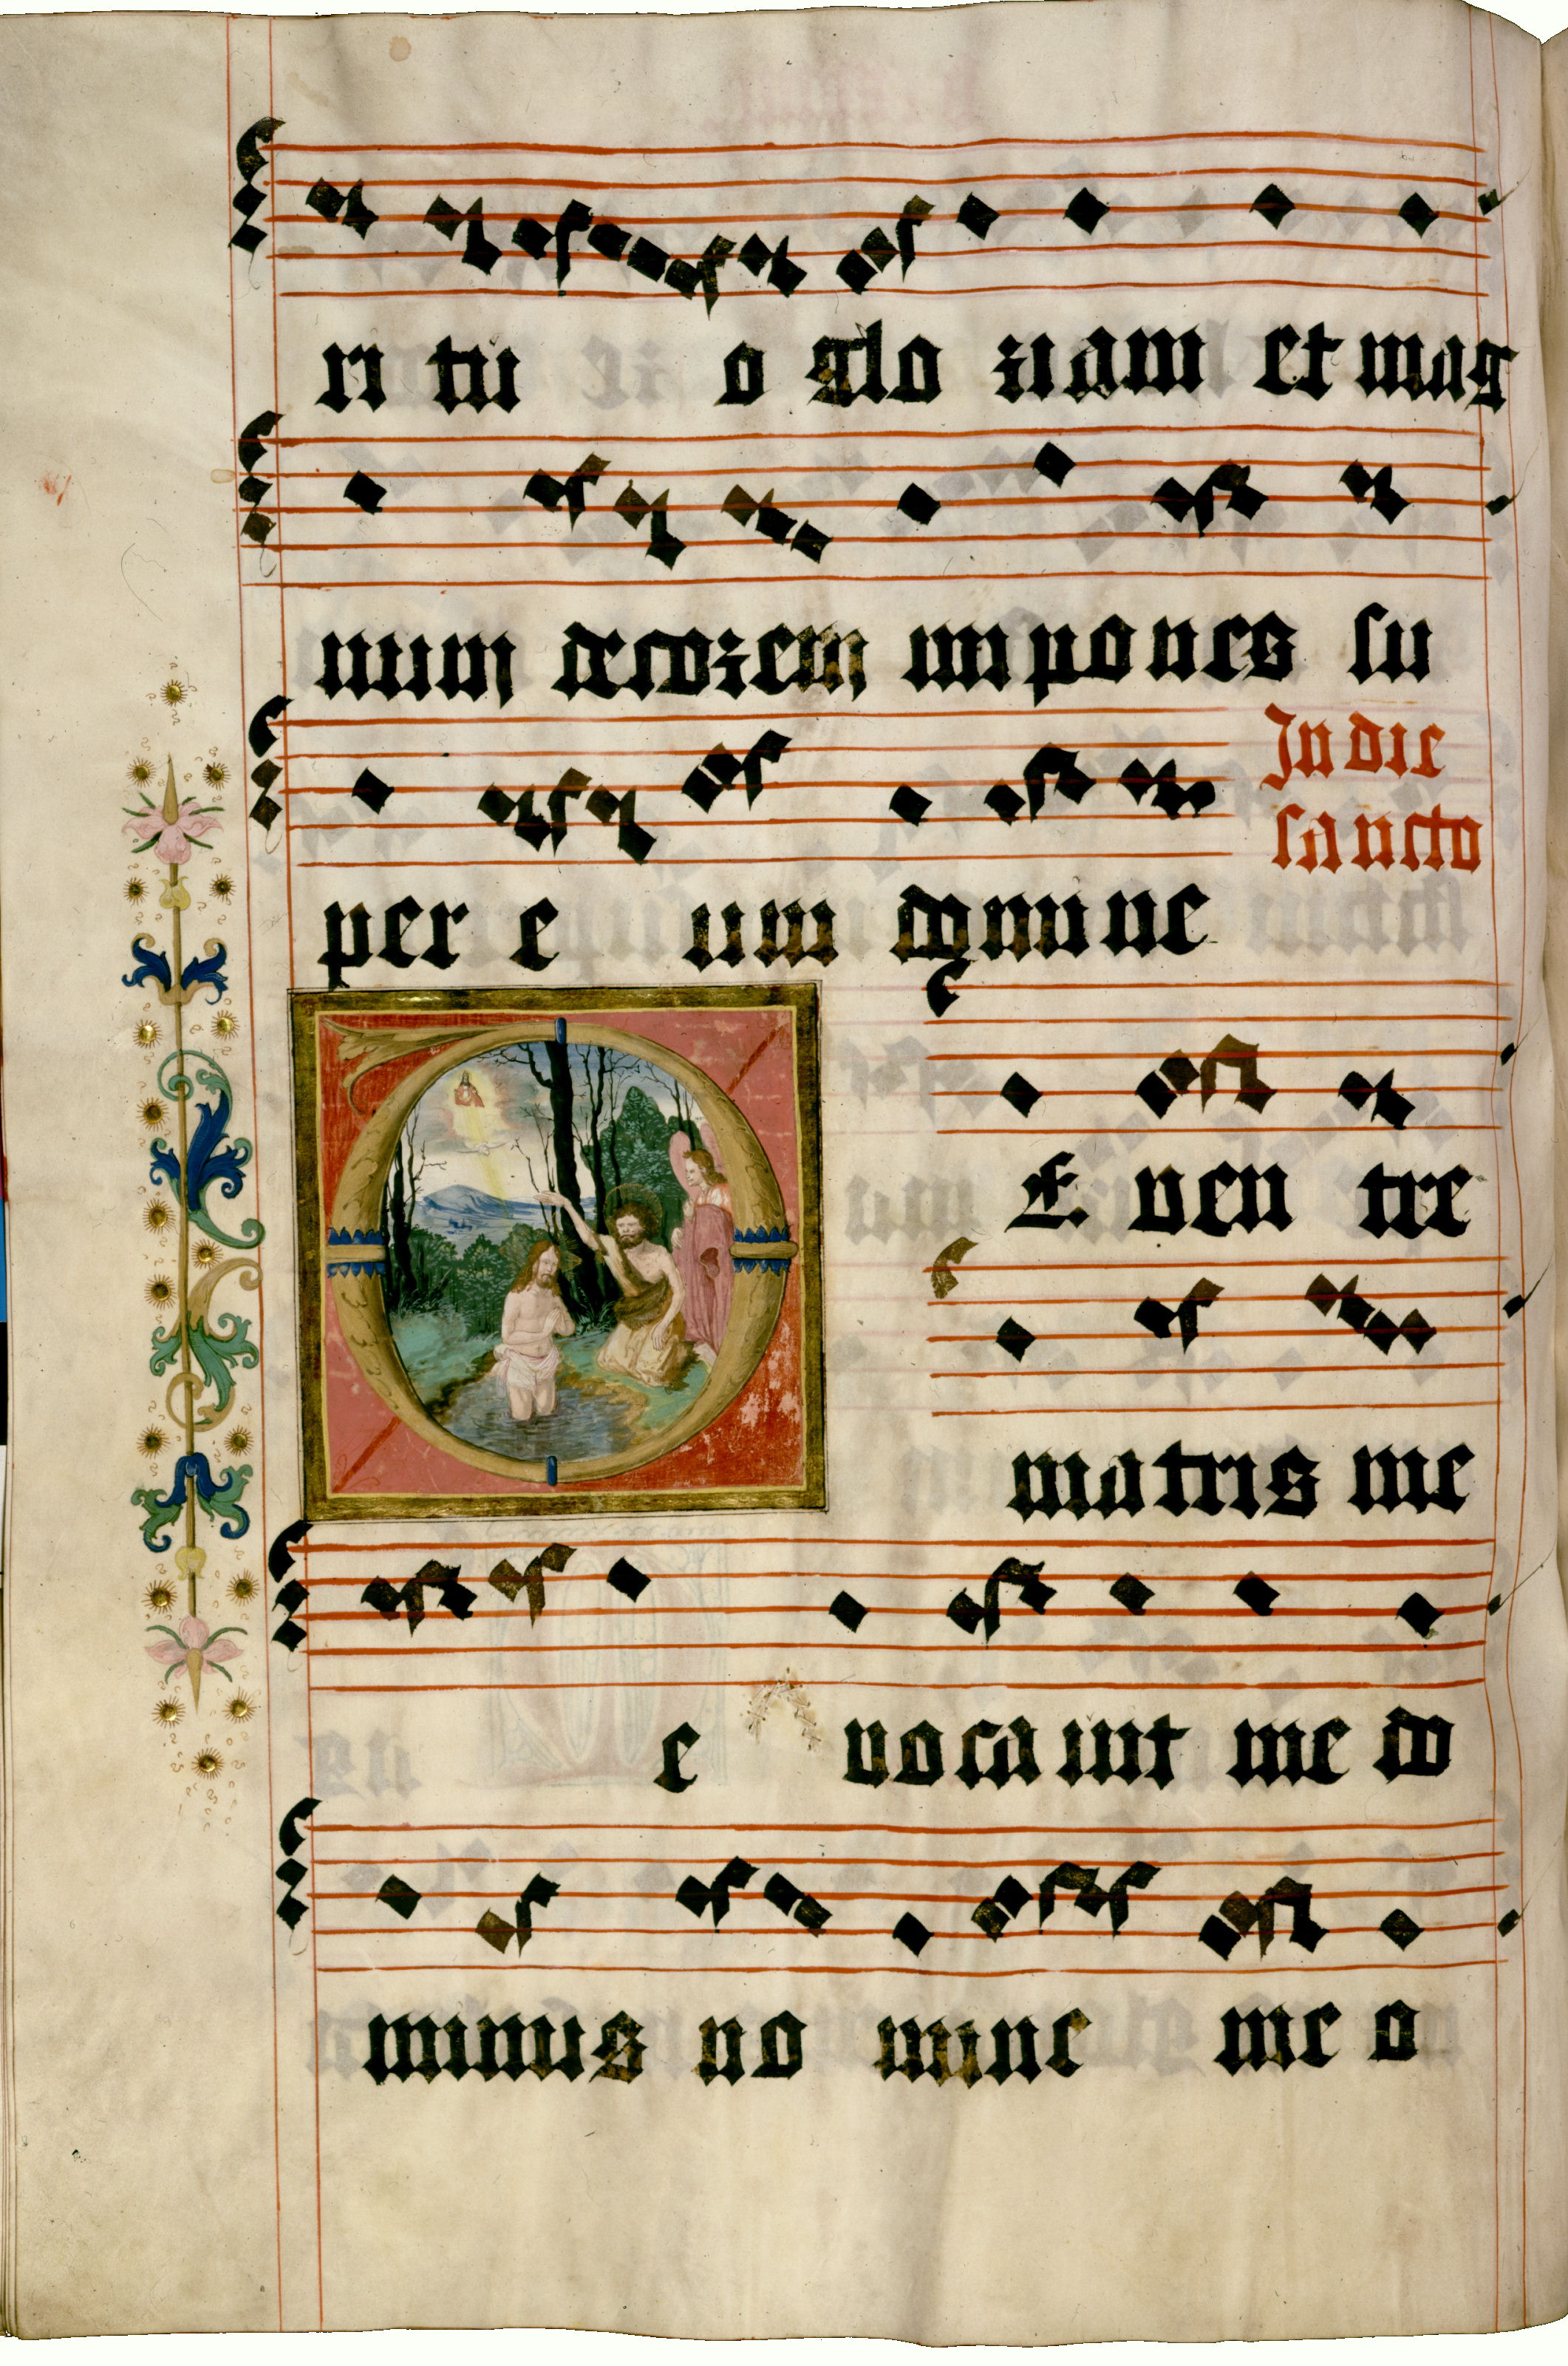 ri tu o glo riam et mag
num decorem impones su
per e um domine
In die
sancto
De ven tre
matris me
e vocauit me do
minus no mine me o